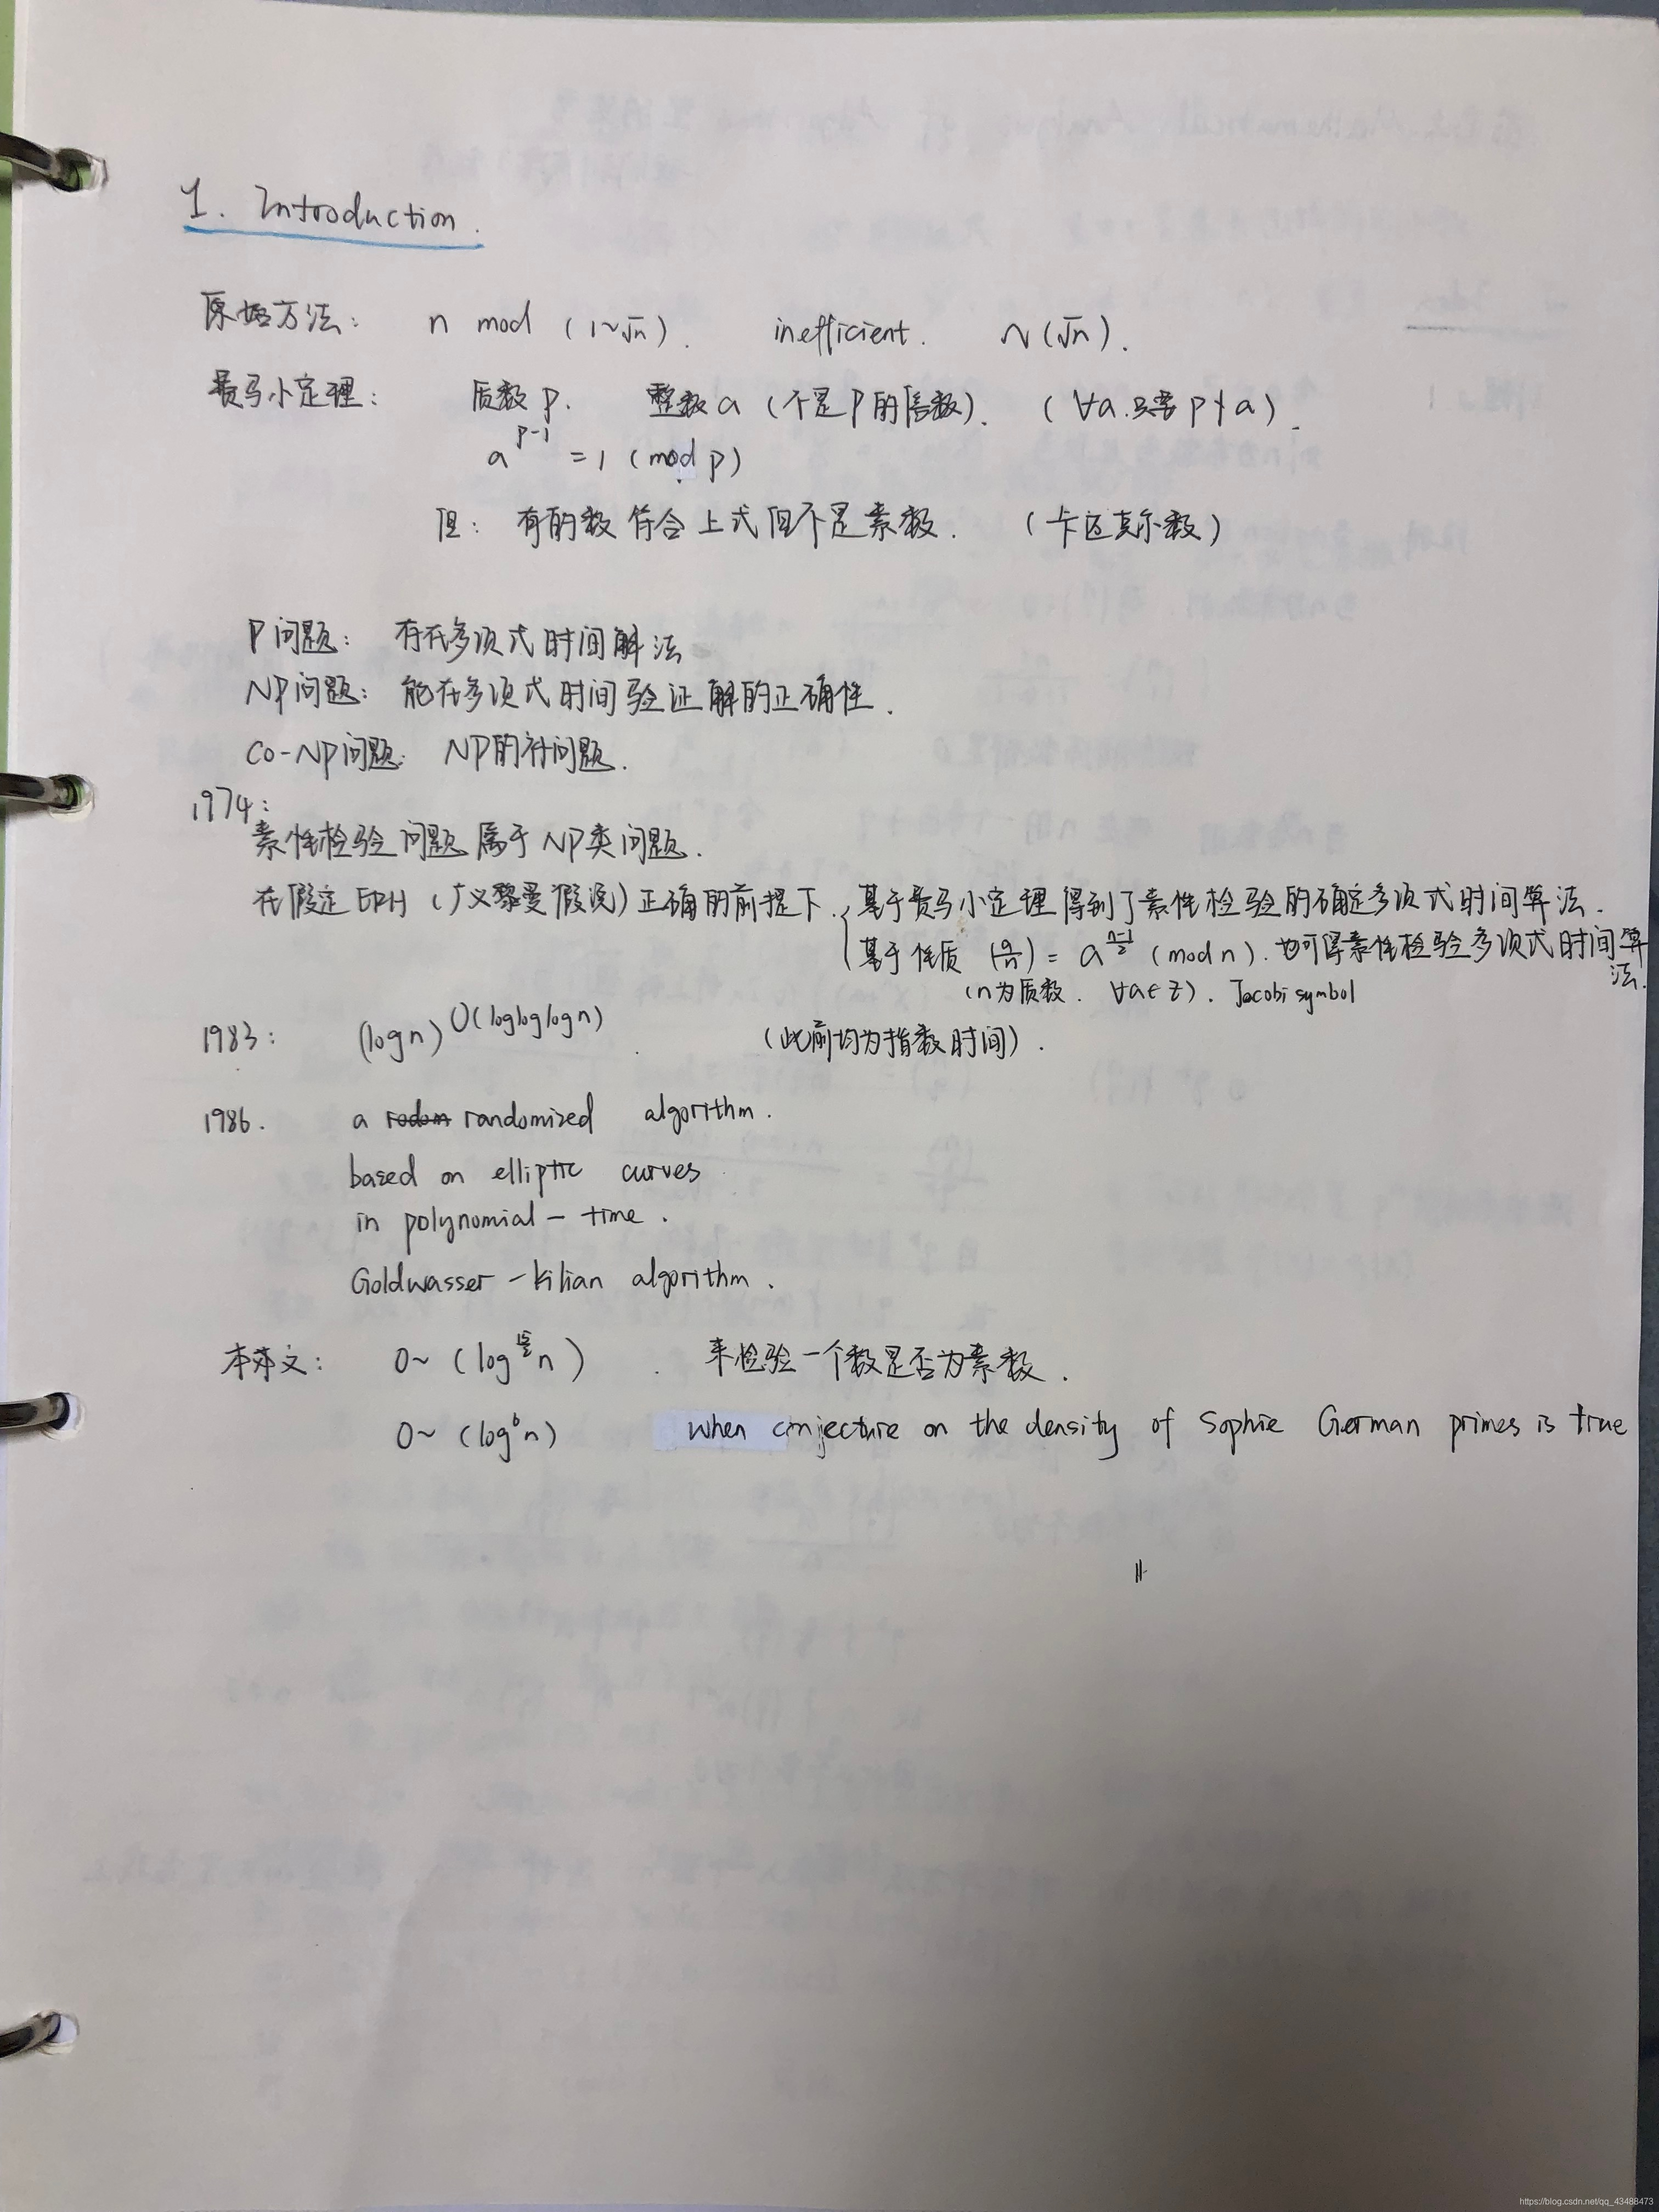 1. Introduction.
原始方法: n mod (1~√n). inefficient. ~(√n).
费马小定理: 质数p. 整数a (不是p的倍数). (∀a.只要p∤a).
a^{p-1} = 1 (mod p)
但: 有的数符合上式但不是素数. (卡迈克尔数)
P问题: 存在多项式时间解法
NP问题: 能在多项式时间验证解的正确性.
Co-NP问题: NP的补问题.
1974:
素性检验问题属于NP类问题.
在假定ERH (广义黎曼假说) 正确的前提下. { 基于费马小定理得到了素性检验的确定多项式时间算法.
基于性质 (a/n) = a^{\frac{n-1}{2}} (mod n). 也可得素性检验多项式时间算法.
(n为质数. ∀a∈Z). Jacobi symbol
1983: (log n)^{O(log log log n)} (此前均为指数时间).
1986. a randomized algorithm.
based on elliptic curves
in polynomial - time.
Goldwasser - Kilian algorithm.
本文: O~ (log^{\frac{15}{2}} n) . 来检验一个数是否为素数.
O~ (log^6 n) when conjecture on the density of Sophie German primes is true
https://blog.csdn.net/qq_43488473